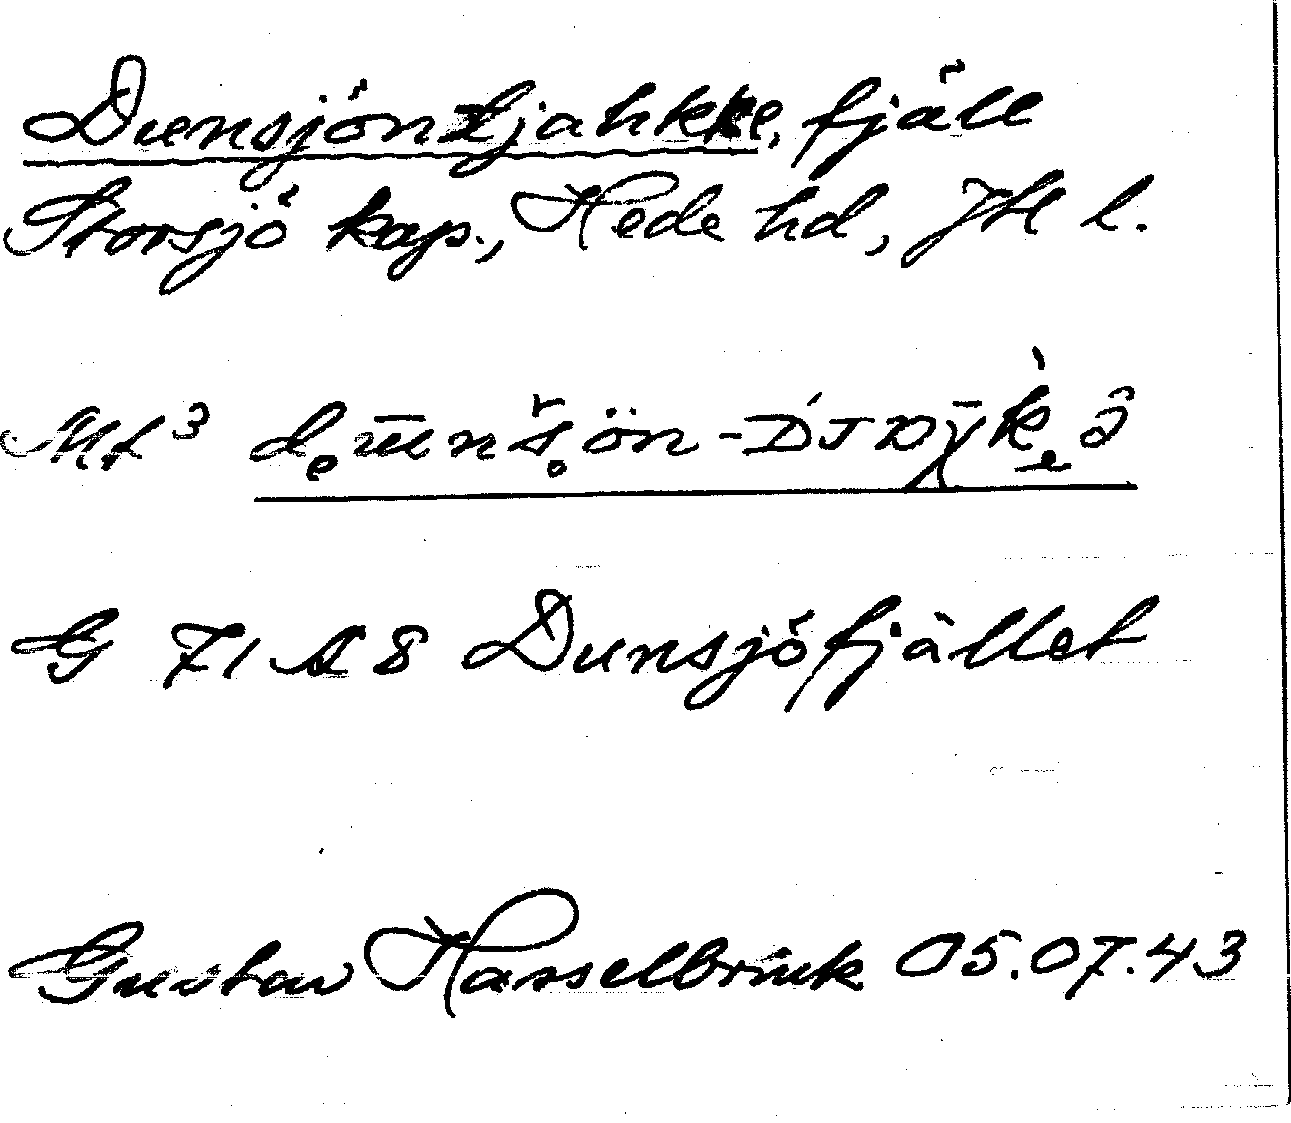 Dunsjöntjahkke, fjäll
Storsjö kap., Hede hd, Jtl l.
G 71 A 8 Dunsjöfjället
Gustav Hasselbrink 05.07.43